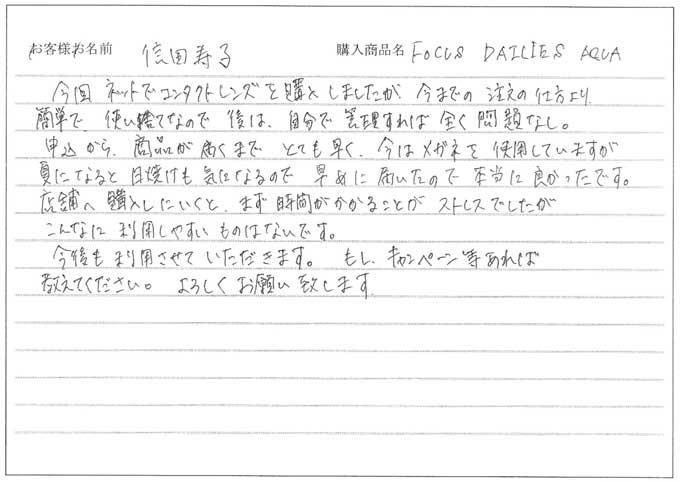 お客様お名前 信田寿子 購入商品名 FOCUS DAILIES AQUA
今回 ネットでコンタクトレンズを購入しましたが、今までの注文の仕方より
簡単で、使い捨てなので後は、自分で管理すれば全く問題なし。
申込から、商品が届くまで とても早く、今はメガネを使用していますが
夏になると日焼けも気になるので 早めに届いたので 本当に良かったです。
店舗へ購入しにいくと、まず時間がかかることが ストレスでしたが
こんなに利用しやすいものはないです。
今後も利用させていただきます。 もし、キャンペーン等あれば
教えてください。 よろしくお願い致します